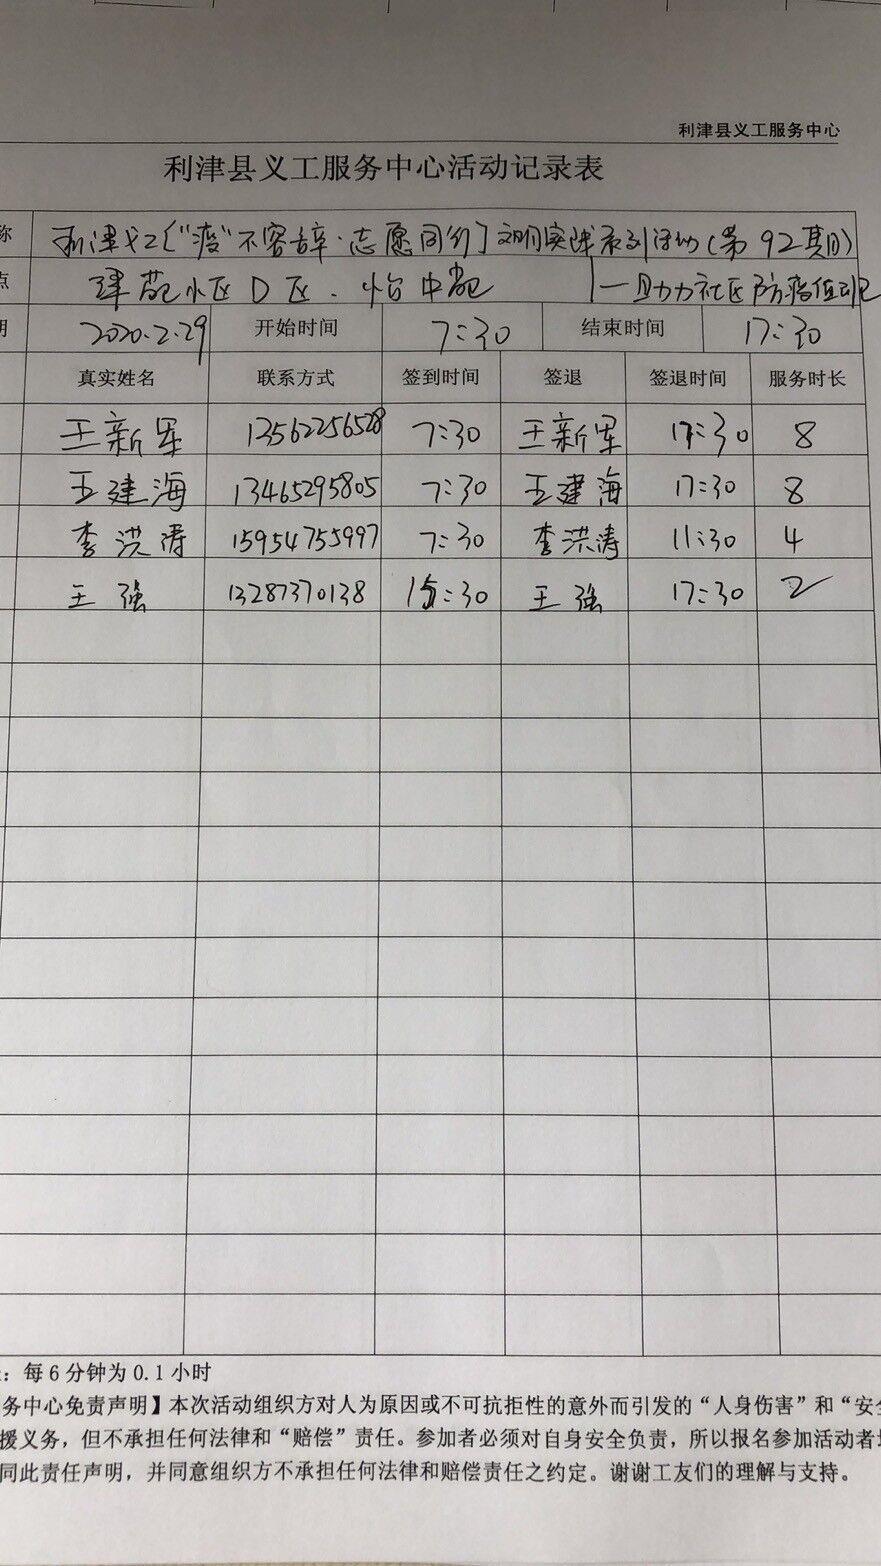 利津县义工服务中心
利津县义工服务中心活动记录表
称 利津义工["疫"不容辞·志愿同行]文明实践系列活动(第92期)
点 津苑小区D区、怡中苑 —助力社区防疫值班
期 2020.2.29 开始时间 7:30 结束时间 17:30
真实姓名 联系方式 签到时间 签退 签退时间 服务时长
王新军 13562256528 7:30 王新军 17:30 8
王建海 13465295805 7:30 王建海 17:30 8
李洪涛 15954755997 7:30 李洪涛 11:30 4
王强 13287370138 15:30 王强 17:30 2
:每6分钟为0.1小时
务中心免责声明】本次活动组织方对人为原因或不可抗拒性的意外而引发的“人身伤害”和“安全
援义务，但不承担任何法律和“赔偿”责任。参加者必须对自身安全负责，所以报名参加活动者
同此责任声明，并同意组织方不承担任何法律和赔偿责任之约定。谢谢工友们的理解与支持。